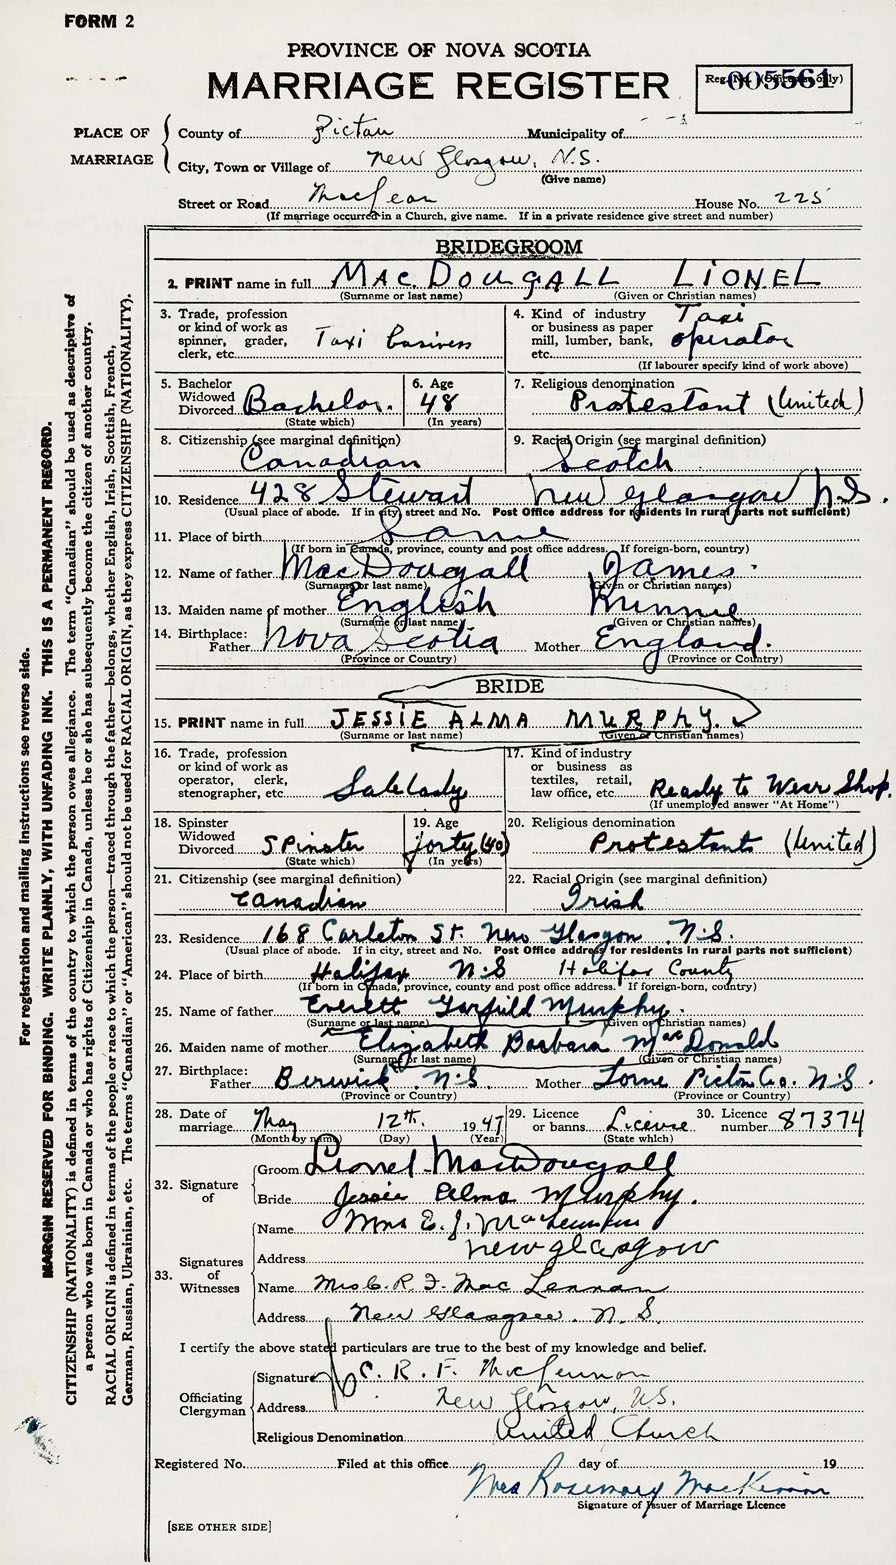 FORM 2
PROVINCE OF NOVA SCOTIA
MARRIAGE REGISTER
Reg. No. (Office use only)
005561
PLACE OF MARRIAGE
County of Pictou Municipality of
City, Town or Village of New Glasgow, N.S.
(Give name)
Street or Road MacLean House No. 225
(If marriage occurred in a Church, give name. If in a private residence give street and number)
BRIDEGROOM
2. PRINT name in full MACDOUGALL LIONEL
(Surname or last name) (Given or Christian names)
3. Trade, profession or kind of work as spinner, grader, clerk, etc. Taxi business
4. Kind of industry or business as paper mill, lumber, bank, etc. Taxi operator
(If labourer specify kind of work above)
5. Bachelor Widowed Divorced Bachelor.
(State which)
6. Age 48
(In years)
7. Religious denomination
Protestant (United)
8. Citizenship (see marginal definition)
Canadian
9. Racial Origin (see marginal definition)
Scotch
10. Residence 428 Stewart New Glasgow N.S.
(Usual place of abode. If in city, street and No. Post Office address for residents in rural parts not sufficient)
11. Place of birth Same
(If born in Canada, province, county and post office address. If foreign-born, country)
12. Name of father MacDougall James
(Surname or last name) (Given or Christian names)
13. Maiden name of mother English Minnie
(Surname or last name) (Given or Christian names)
14. Birthplace: Father Nova Scotia Mother England.
(Province or Country) (Province or Country)
BRIDE
15. PRINT name in full JESSIE ALMA MURPHY.
(Surname or last name) (Given or Christian names)
16. Trade, profession or kind of work as operator, clerk, stenographer, etc. Saleslady
17. Kind of industry or business as textiles, retail, law office, etc. Ready to Wear Shop.
(If unemployed answer "At Home")
18. Spinster Widowed Divorced Spinster
(State which)
19. Age forty (40)
(In years)
20. Religious denomination
Protestant (United)
21. Citizenship (see marginal definition)
Canadian
22. Racial Origin (see marginal definition)
Irish
23. Residence 168 Carleton St. New Glasgow N.S.
(Usual place of abode. If in city, street and No. Post Office address for residents in rural parts not sufficient)
24. Place of birth Halifax N.S Halifax County
(If born in Canada, province, county and post office address. If foreign-born, country)
25. Name of father Everett Garfield Murphy.
(Surname or last name) (Given or Christian names)
26. Maiden name of mother Elizabeth Barbara MacDonald
(Surname or last name) (Given or Christian names)
27. Birthplace: Father Berwick N.S. Mother Lorne Pictou Co. N.S.
(Province or Country) (Province or Country)
28. Date of marriage May 12th. 1947
(Month by name) (Day) (Year)
29. Licence or banns License
(State which)
30. Licence number 87374
32. Signature of
Groom Lionel MacDougall
Bride Jessie Alma Murphy.
33. Signatures of Witnesses
Name Mrs E. J. MacLennan
Address New Glasgow
Name Mrs C. R. F. MacLennan
Address New Glasgow. N. S.
I certify the above stated particulars are true to the best of my knowledge and belief.
Officiating Clergyman
Signature C. R. F. MacLennon
Address New Glasgow, N.S.
Religious Denomination United Church
Registered No. Filed at this office day of 19
Mrs Rosemary MacKinnon
Signature of Issuer of Marriage Licence
[SEE OTHER SIDE]
For registration and mailing instructions see reverse side.
MARGIN RESERVED FOR BINDING. WRITE PLAINLY, WITH UNFADING INK. THIS IS A PERMANENT RECORD.
CITIZENSHIP (NATIONALITY) is defined in terms of the country to which the person owes allegiance. The term "Canadian" should be used as descriptive of
a person who was born in Canada or who has rights of Citizenship in Canada, unless he or she has subsequently become the citizen of another country.
RACIAL ORIGIN is defined in terms of the people or race to which the person—traced through the father—belongs, whether English, Irish, Scottish, French,
German, Russian, Ukrainian, etc. The terms "Canadian" or "American" should not be used for RACIAL ORIGIN, as they express CITIZENSHIP (NATIONALITY).